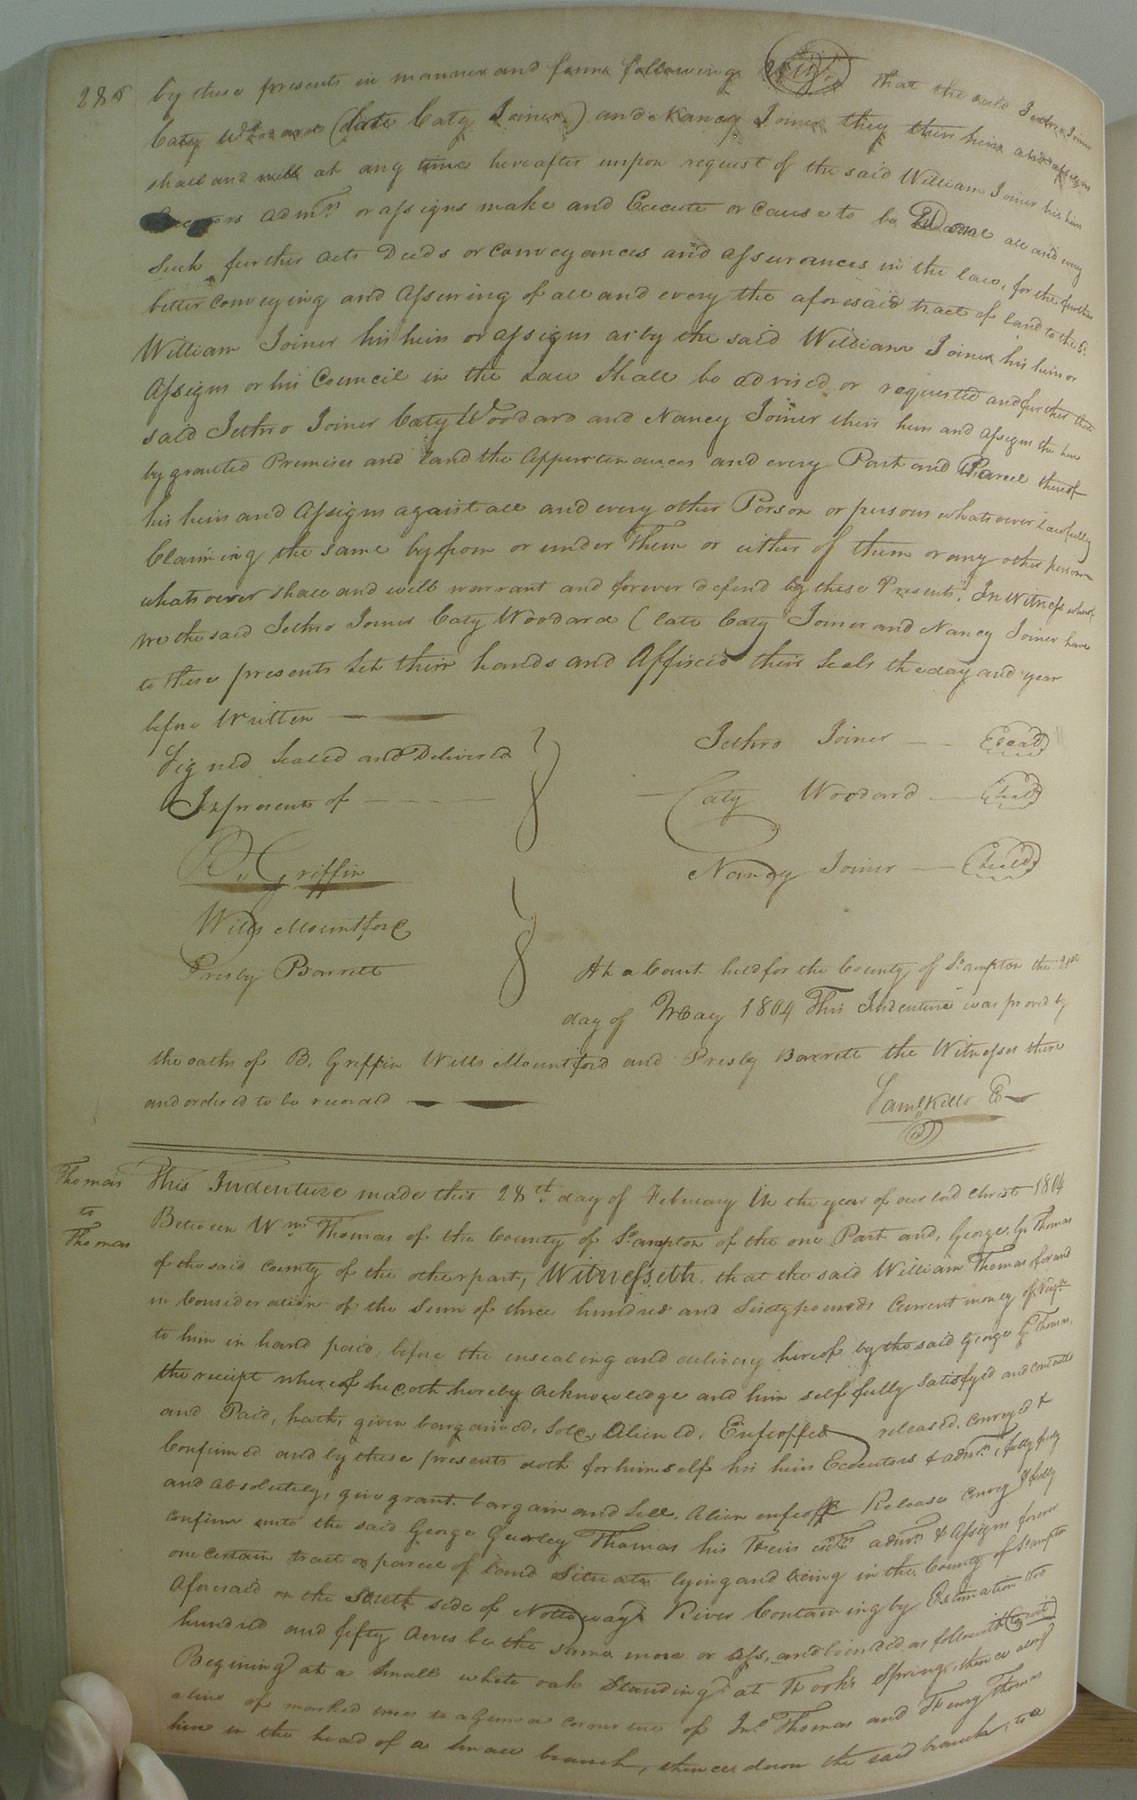 286 by these presents in manner and form following (Viz) that the said Jethro Joiner
Caty Woodard (late Caty Joiner) and Nancy Joiner they their heirs and assigns
shall and will at any time hereafter uupon request of the said William Joiner his heirs
admrs. or assigns make and Execute or cause to be Done all and every
Such further acts Deeds or conveyances and assurances in the law, for the further
better conveying and Assuring of all and every the aforesaid tract of land to the Sd.
William Joiner his heirs or assigns as by the said William Joiner his heirs or
Assigns or his Council in the Law Shall be advised or requested and further that
said Jethro Joiner Caty Woodard and Nancy Joiner their heirs and assigns the here
by granted Premises and land the Appurtenances and every Part and Parcel thereof
his heirs and Assigns against all and every other Person or persons whatsoever lawfully
Claiming the same by from or under Them or either of them or any other person
whatsoever shall and will warrant and forever defend by these Presents. In witness whereof
we the said Jethro Joiner Caty Woodard (late Caty Joiner and Nancy Joiner have
to these presents Set their hands and Affixed their Seals the day and year
before Written
Signed Sealed and Delivered
In presents of
Jethro Joiner (Seal)
Caty Woodard (Seal)
Nancy Joiner (Seal)
B. Griffin
Wills Mountford
Presby Barrett
At a Court held for the County of S.ampton the 21st
day of May 1804 This Indenture was proved by
the oaths of B. Griffin Wills Mountford and Presby Barrett the Witnesses thereto
and ordered to be record
Saml. Kello
Thomas
to
Thomas
This Indenture made this 28th. day of February in the year of our lord Christ 1804
Between Wm. Thomas of the County of S.ampton of the one Part and, George G. Thomas
of the said County of the other part, Witnesseth, that the said William Thomas for and
in Consideration of the Sum of three hundred and Sixty pounds Current money of Virga.
to him in hand paid, before the ensealing and delivery hereof by the said George G. Thomas,
the receipt whereof he doth hereby Acknowledge and him self fully Satisfyed and contented
and Paid, hath, given bargained, Sold, Aliened, Enfeoffed released, conveyed &
Confirmed and by these presents doth for himself his heirs Executors & admrs. fully
and absolutely, give grant, bargain and Sell, Alien enfeoff Release convey & fully
confirm unto the said George Gurley Thomas his Heirs exrs. admrs. & Assigns forever
one certain tract or parcel of land Situate lying and being in the County of S.ampton
Aforesaid on the South side of Nottoway River Containing by Estimation two
hundred and fifty Acres be the same more or less, and bounded as followeth (to wit)
Begining at a small white oak Standing at Spring, thence along
a line of marked trees to a corner of Jno. Thomas and Henry Thomas
line in the head of a small branch, thence down the said branch, to a